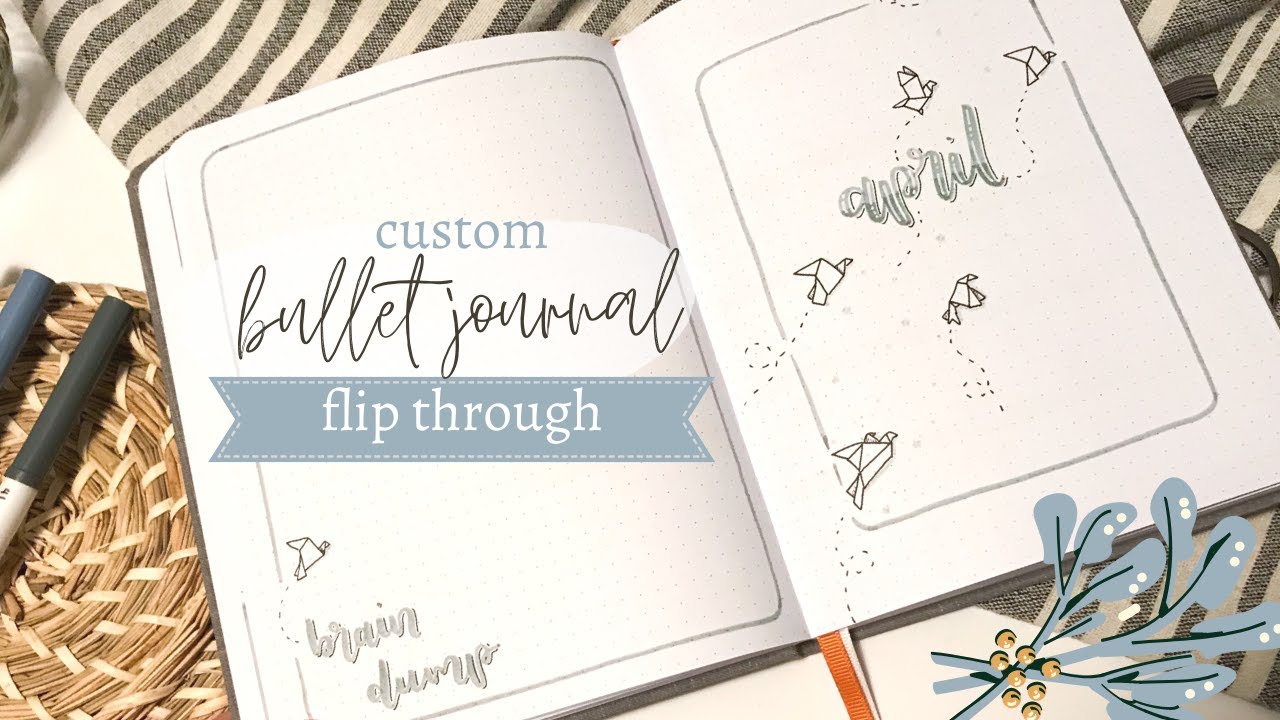 custom
bullet journal
flip through
april
brain
dump